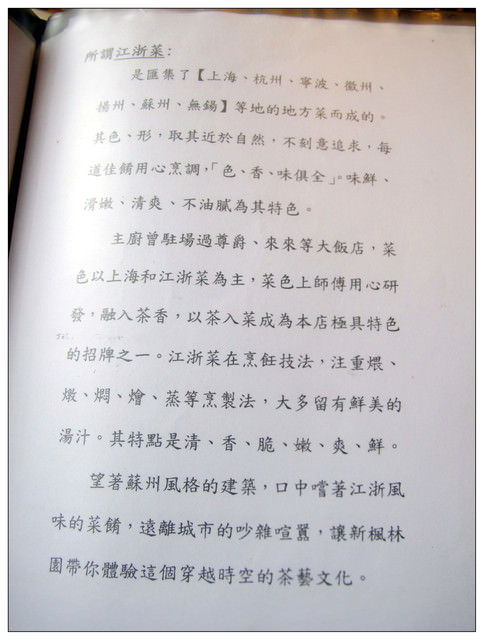 所謂江浙菜：
是匯集了【上海、杭州、寧波、徽州、
揚州、蘇州、無錫】等地的地方菜而成的。
其色、形，取其近於自然，不刻意追求，每
道佳餚用心烹調，「色、香、味俱全」。味鮮、
滑嫩、清爽、不油膩為其特色。
主廚曾駐場過尊爵、來來等大飯店，菜
色以上海和江浙菜為主，菜色上師傅用心研
發，融入茶香，以茶入菜成為本店極具特色
的招牌之一。江浙菜在烹飪技法，注重煨、
燉、燜、燴、蒸等烹製法，大多留有鮮美的
湯汁。其特點是清、香、脆、嫩、爽、鮮。
望著蘇州風格的建築，口中嚐著江浙風
味的菜餚，遠離城市的吵雜喧囂，讓新楓林
園帶你體驗這個穿越時空的茶藝文化。